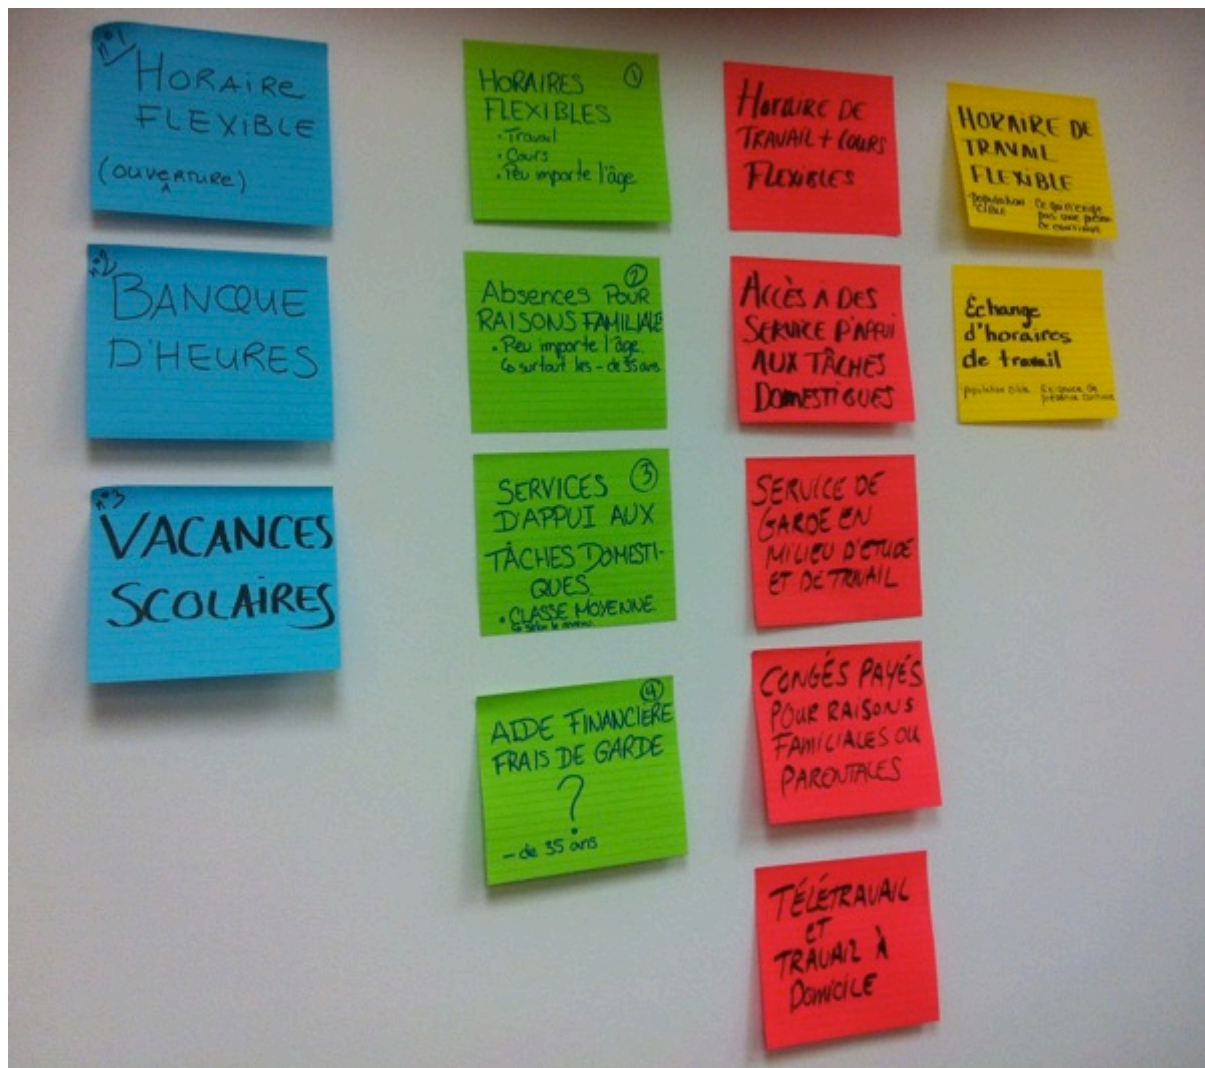 n°1
HORAIRE
FLEXIBLE
(OUVERTURE)
n°2
BANQUE
D'HEURES
n°3
VACANCES
SCOLAIRES
HORAIRES 1
FLEXIBLES
• Travail
• Cours
• Peu importe l'âge
2
Absences POUR
RAISONS FAMILIALE
• Peu importe l'âge
↳ surtout les - de 35 ans
SERVICES 3
D'APPUI AUX
TÂCHES DOMESTI-
QUES
• CLASSE MOYENNE
4
AIDE FINANCIÈRE
FRAIS DE GARDE
?
- de 35 ans
HORAIRE DE
TRAVAIL + COURS
FLEXIBLES
ACCÈS A DES
SERVICE D'APPUI
AUX TÂCHES
DOMESTIQUES
SERVICE DE
GARDE EN
MILIEU D'ETUDE
ET DE TRAVAIL
CONGÉS PAYÉS
POUR RAISONS
FAMILIALES OU
PARENTALES
TÉLÉTRAVAIL
ET
TRAVAIL À
DOMICILE
HORAIRE DE
TRAVAIL
FLEXIBLE
population
cible
Échange
d'horaires
de travail
population cible